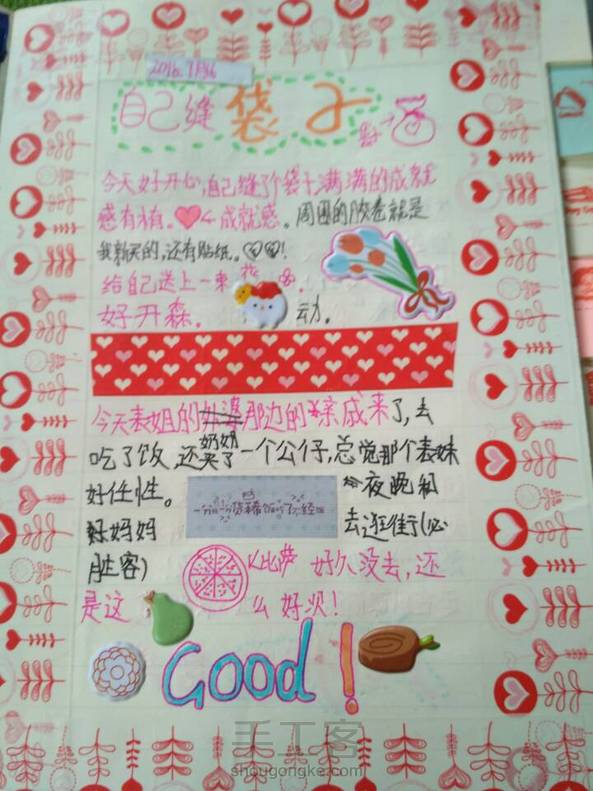 自己缝袋子
今天好开心,自己缝了个袋子满满的成就
感有木有。←成就感。周围的胶卷就是
我新买的,还有贴纸。!
给自己送上一束花
好开森。动。
今天表姐的那边的亲戚来了,去
吃了饭,还买了一个公仔,总觉那个表妹
奶奶
好任性。夜晚和
妈妈去逛街(必
胜客)
比萨 好久没去,还
是这么好火!
Good!
手工客
shougongke.com